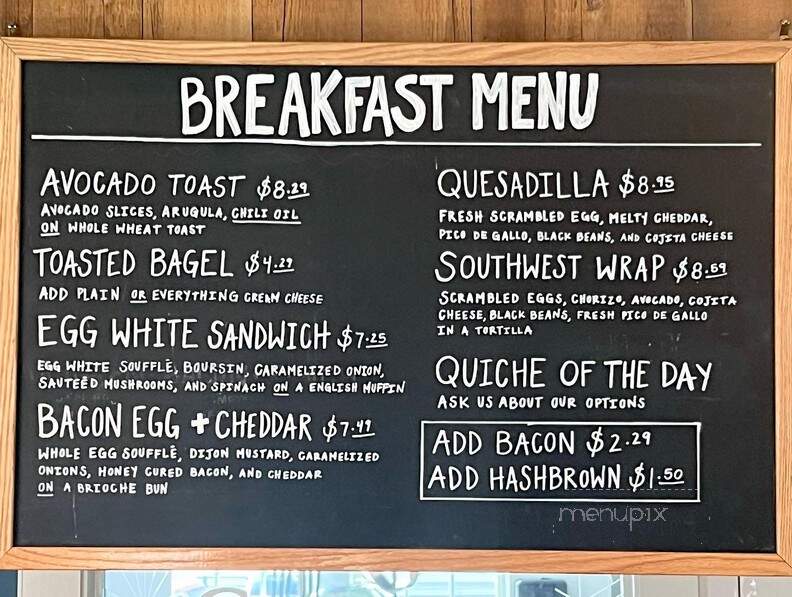 BREAKFAST MENU
AVOCADO TOAST $8.29
AVOCADO SLICES, ARUGULA, CHILI OIL
ON WHOLE WHEAT TOAST
TOASTED BAGEL $4.29
ADD PLAIN OR EVERYTHING CREAM CHEESE
EGG WHITE SANDWICH $7.25
EGG WHITE SOUFFLÉ, BOURSIN, CARAMELIZED ONION,
SAUTEÉD MUSHROOMS, AND SPINACH ON A ENGLISH MUFFIN
BACON EGG + CHEDDAR $7.49
WHOLE EGG SOUFFLÉ, DIJON MUSTARD, CARAMELIZED
ONIONS, HONEY CURED BACON, AND CHEDDAR
ON A BRIOCHE BUN
QUESADILLA $8.95
FRESH SCRAMBLED EGG, MELTY CHEDDAR,
PICO DE GALLO, BLACK BEANS, AND COJITA CHEESE
SOUTHWEST WRAP $8.69
SCRAMBLED EGGS, CHORIZO, AVOCADO, COJITA
CHEESE, BLACK BEANS, FRESH PICO DE GALLO
IN A TORTILLA
QUICHE OF THE DAY
ASK US ABOUT OUR OPTIONS
ADD BACON $2.29
ADD HASHBROWN $1.50
menupix